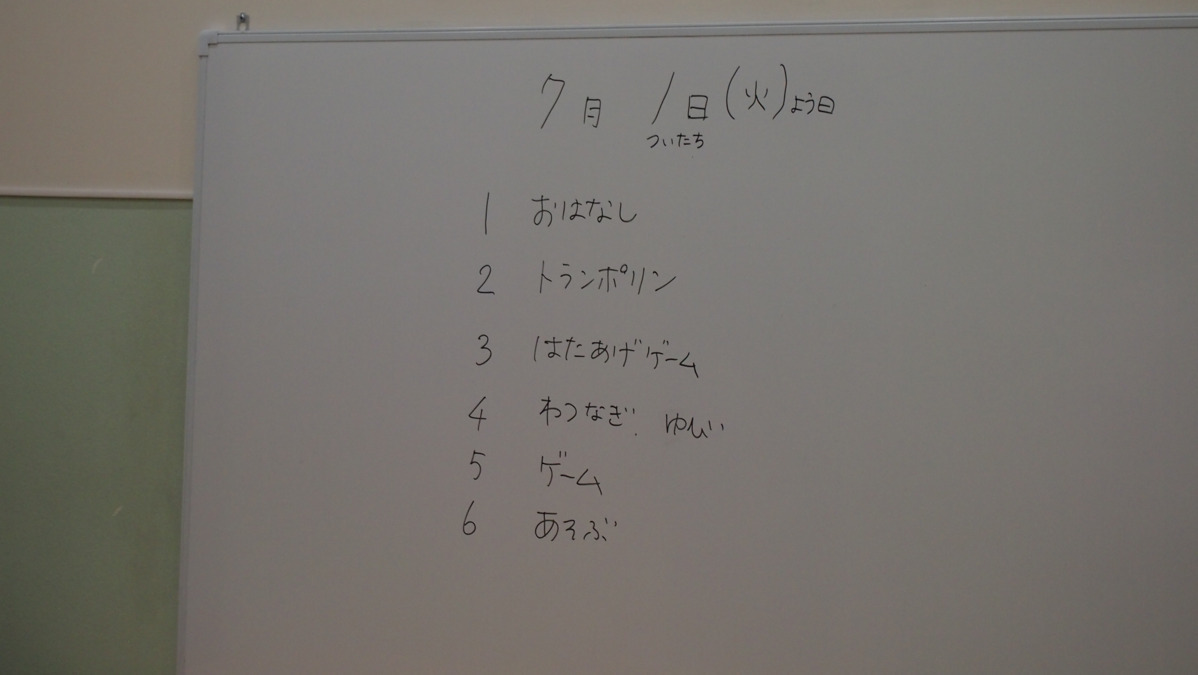 7月 1日(火)よう日
ついたち
1 おはなし
2 トランポリン
3 はたあげゲーム
4 わつなぎ. ゆび
5 ゲーム
6 あそぶ